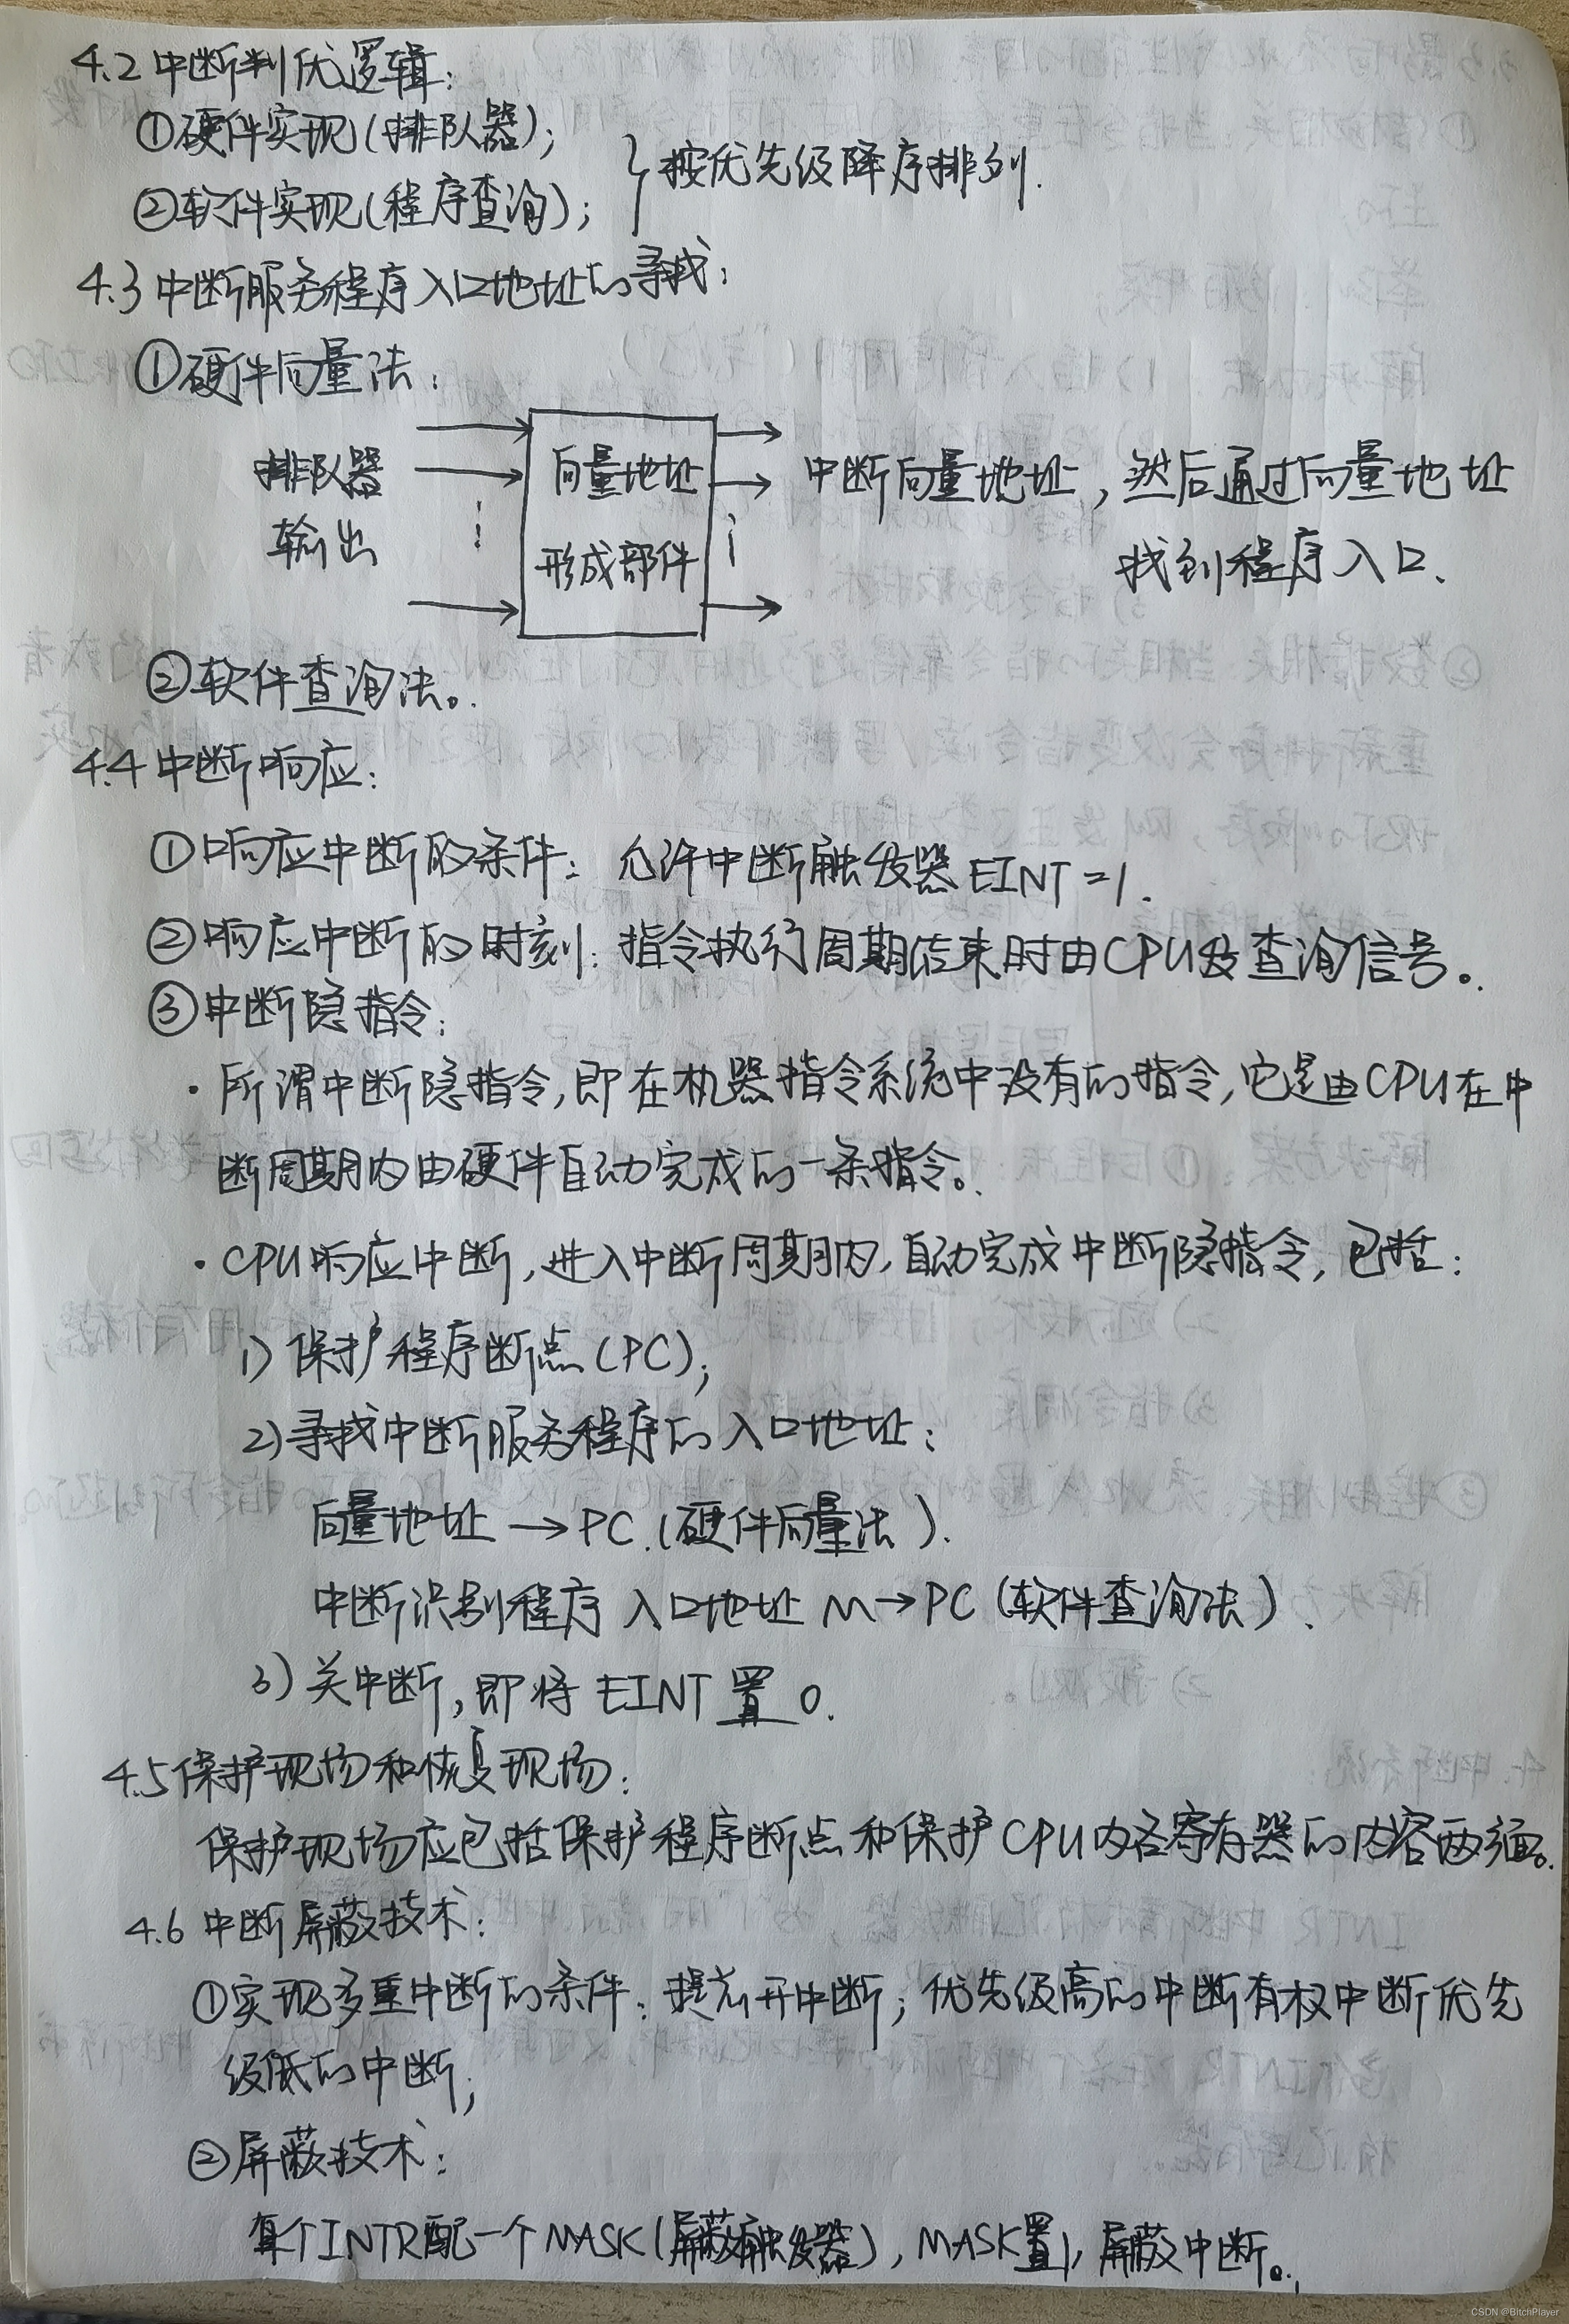 4.2 中断判优逻辑:
①硬件实现(排队器);
②软件实现(程序查询);
按优先级降序排列.
4.3 中断服务程序入口地址的寻找:
①硬件向量法:
排队器
输出
向量地址
形成部件
中断向量地址, 然后通过向量地址
找到程序入口.
②软件查询法。
4.4 中断响应:
①响应中断的条件: 允许中断触发器 EINT=1.
②响应中断的时刻: 指令执行周期结束时由CPU发查询信号。
③中断隐指令:
· 所谓中断隐指令,即在机器指令系统中没有的指令,它是由CPU在中
断周期内由硬件自动完成的一条指令。
· CPU响应中断,进入中断周期内,自动完成中断隐指令, 包括:
1) 保护程序断点(PC);
2)寻找中断服务程序的入口地址:
向量地址 → PC.(硬件向量法).
中断识别程序 入口地址 M→PC (软件查询法).
3) 关中断,即将 EINT 置 0.
4.5 保护现场和恢复现场:
保护现场应包括保护程序断点和保护CPU内各寄存器的内容两方面。
4.6 中断屏蔽技术:
①实现多重中断的条件: 提前开中断; 优先级高的中断有权中断优先
级低的中断;
②屏蔽技术:
每个INTR配一个MASK(屏蔽触发器), MASK置1, 屏蔽中断。
CSDN @BitchPlayer